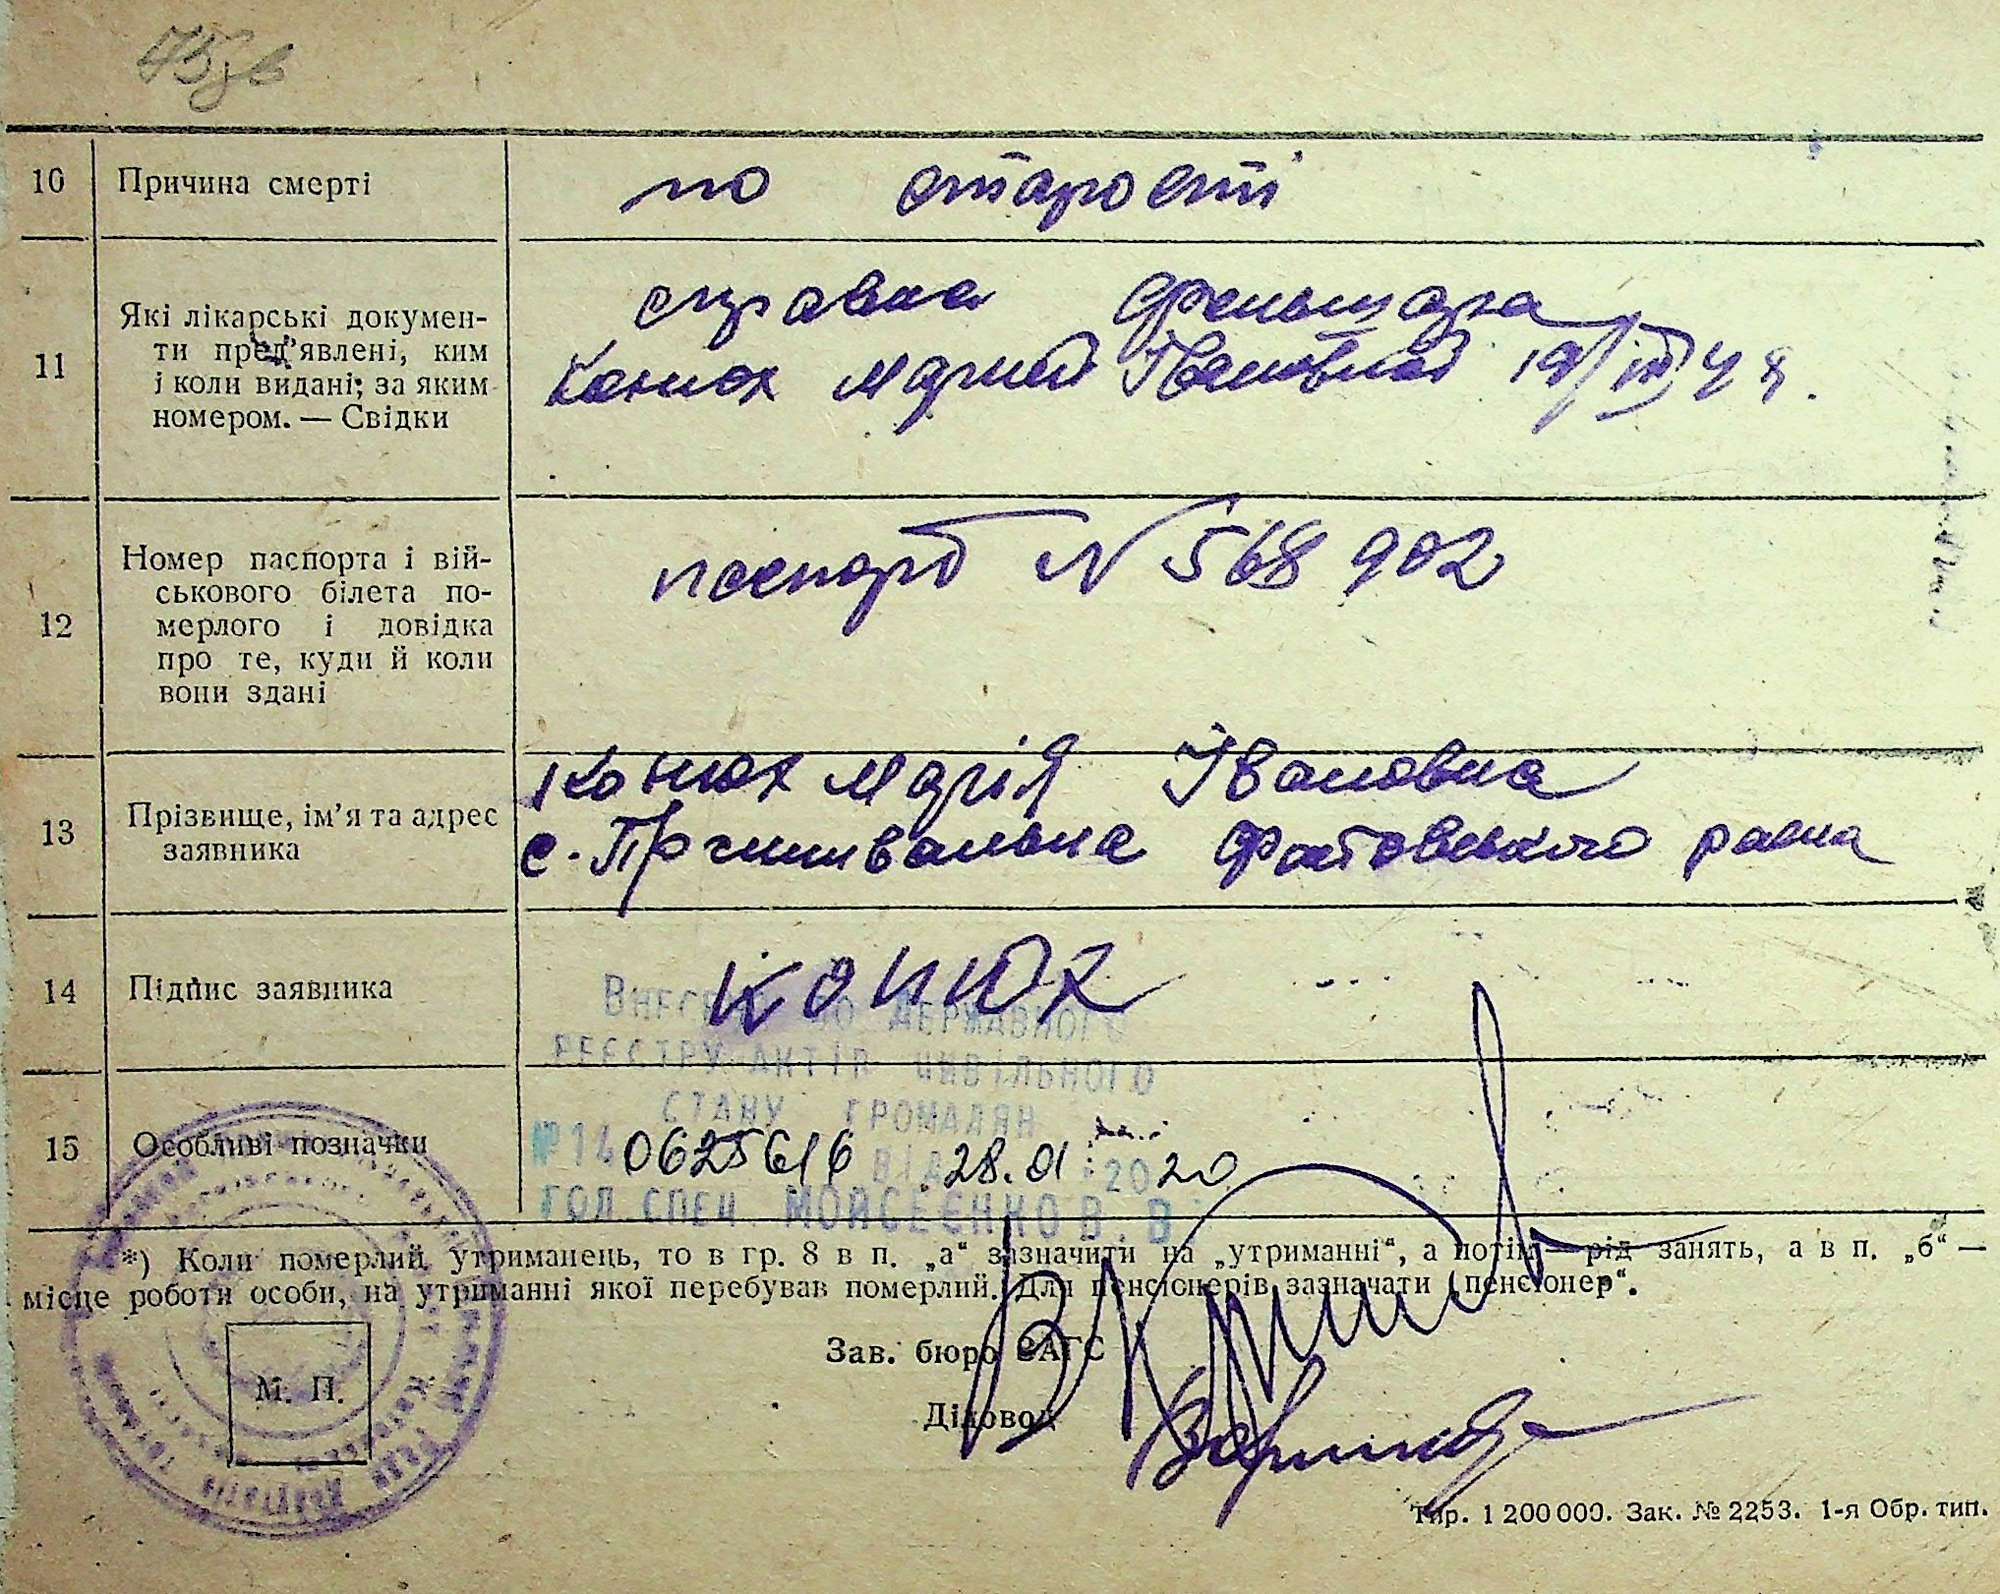 10 Причина смерті по старості
11 Які лікарські докумен-
ти пред'явлені, ким
і коли видані; за яким
номером. — Свідки
справка фельшара
Конюх Марией Івановной 19/III 48.
12 Номер паспорта і вій-
ськового білета по-
мерлого і довідка
про те, куди й коли
вони здані
паспорт N 568902
13 Прізвище, ім'я та адрес
заявника
Конюх Марія Івановна
с. Пришивальня Фастовського района
14 Підпис заявника Конюх
Внесено до Державного
реєстру актів цивільного
стану громадян
15 Особливі позначки
№ 14 0625616 від 28.01 2020
гол. спец. Мойсеєнко В. В
*) Коли померлий утриманець, то в гр. 8 в п. „а“ зазначити на „утриманні“, а потім — рід занять, а в п. „б“ —
місце роботи особи, на утриманні якої перебував померлий. Для пенсіонерів зазначати „пенсіонер“.
Зав. бюро ЗАГС
М. П.
Діловод
Тир. 1 200 000. Зак. № 2253. 1-я Обр. тип.